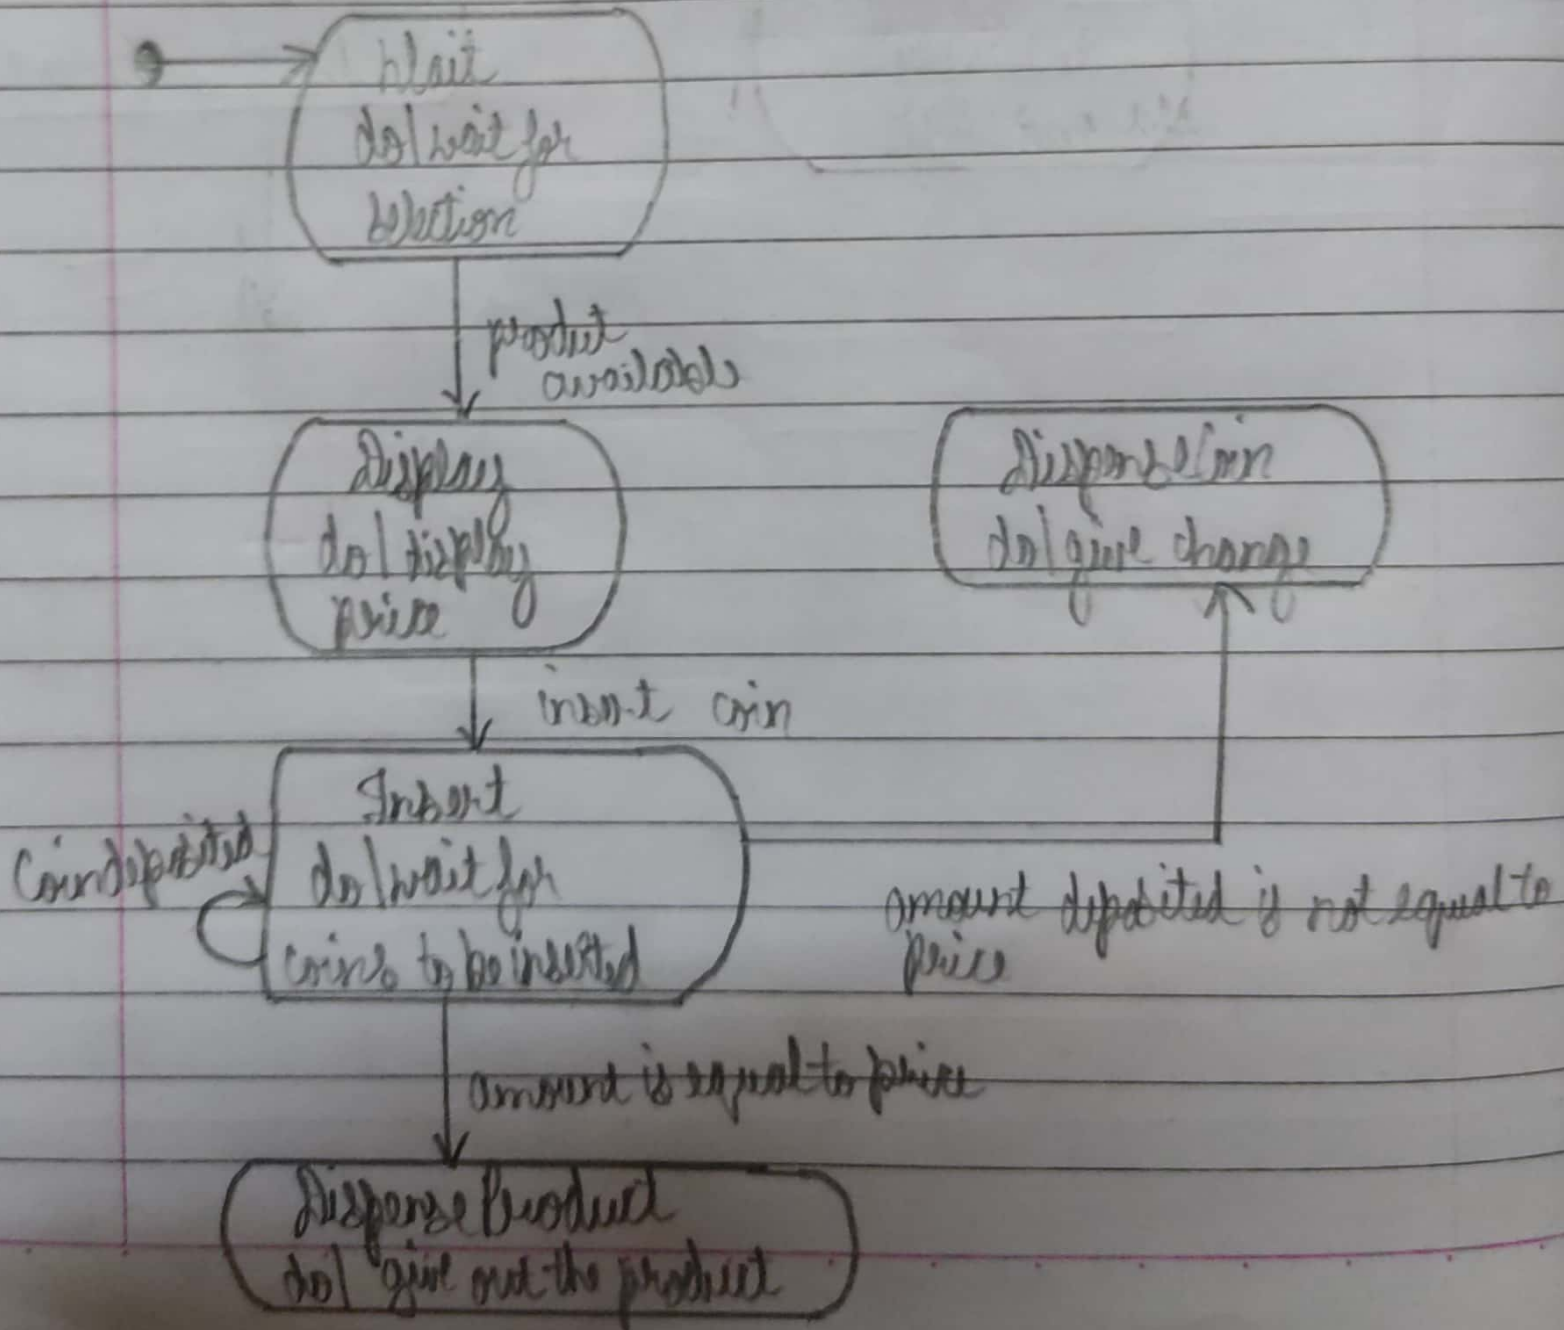 Wait
do/wait for
selection
product
available
Display
do/display
price
DispenseCoin
do/give change
insert coin
Insert
do/wait for
coins to be inserted
Coin deposited
amount deposited is not equal to
price
amount is equal to price
Dispense Product
do/ give out the product